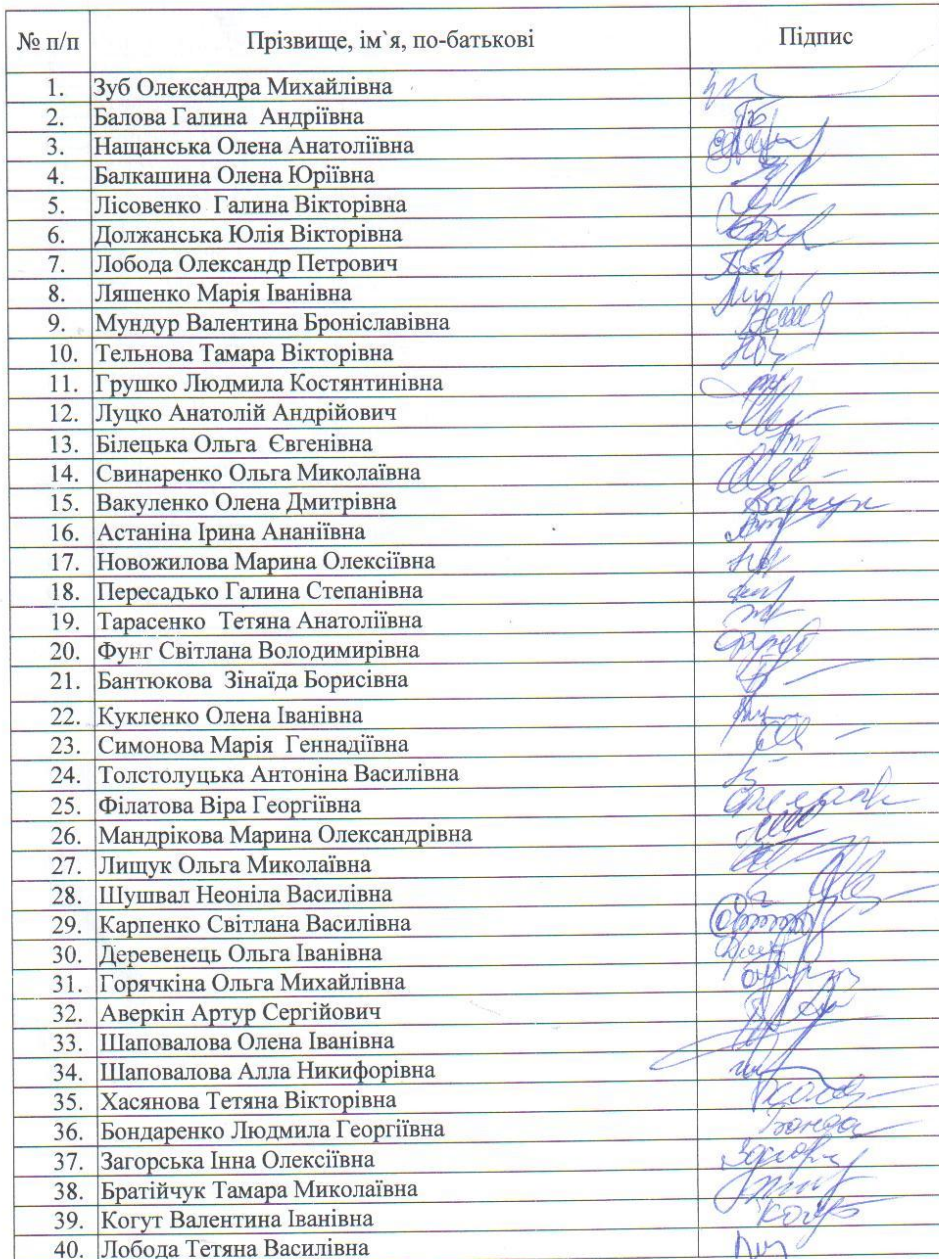 № п/п Прізвище, ім`я, по-батькові Підпис
1. Зуб Олександра Михайлівна
2. Балова Галина Андріївна
3. Нащанська Олена Анатоліївна
4. Балкашина Олена Юріївна
5. Лісовенко Галина Вікторівна
6. Должанська Юлія Вікторівна
7. Лобода Олександр Петрович
8. Ляшенко Марія Іванівна
9. Мундур Валентина Броніславівна
10. Тельнова Тамара Вікторівна
11. Грушко Людмила Костянтинівна
12. Луцко Анатолій Андрійович
13. Білецька Ольга Євгенівна
14. Свинаренко Ольга Миколаївна
15. Вакуленко Олена Дмитрівна
16. Астаніна Ірина Ананіївна
17. Новожилова Марина Олексіївна
18. Пересадько Галина Степанівна
19. Тарасенко Тетяна Анатоліївна
20. Фунг Світлана Володимирівна
21. Бантюкова Зінаїда Борисівна
22. Кукленко Олена Іванівна
23. Симонова Марія Геннадіївна
24. Толстолуцька Антоніна Василівна
25. Філатова Віра Георгіївна
26. Мандрікова Марина Олександрівна
27. Лищук Ольга Миколаївна
28. Шушвал Неоніла Василівна
29. Карпенко Світлана Василівна
30. Деревенець Ольга Іванівна
31. Горячкіна Ольга Михайлівна
32. Аверкін Артур Сергійович
33. Шаповалова Олена Іванівна
34. Шаповалова Алла Никифорівна
35. Хасянова Тетяна Вікторівна
36. Бондаренко Людмила Георгіївна
37. Загорська Інна Олексіївна
38. Братійчук Тамара Миколаївна
39. Когут Валентина Іванівна Когут
40. Лобода Тетяна Василівна